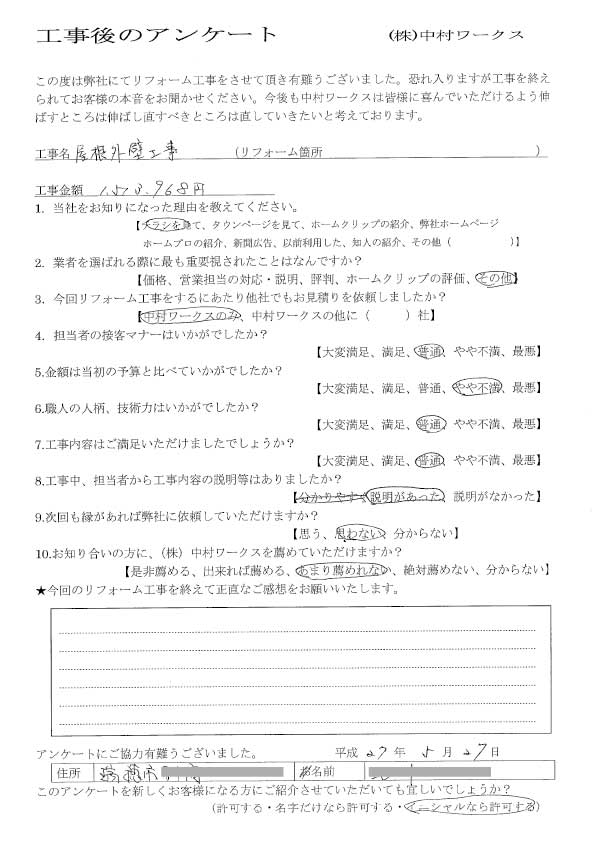 工事後のアンケート　(株)中村ワークス
この度は弊社にてリフォーム工事をさせて頂き有難うございました。恐れ入りますが工事を終え
られてお客様の本音をお聞かせください。今後も中村ワークスは皆様に喜んでいただけるよう伸
ばすところは伸ばし直すべきところは直していきたいと考えております。
工事名 屋根外壁工事　(リフォーム箇所　)
工事金額　968円
1. 当社をお知りになった理由を教えてください。
【チラシを見て、タウンページを見て、ホームクリップの紹介、弊社ホームページ
ホームプロの紹介、新聞広告、以前利用した、知人の紹介、その他（　）】
2. 業者を選ばれる際に最も重要視されたことはなんですか？
【価格、営業担当の対応・説明、評判、ホームクリップの評価、その他】
3. 今回リフォーム工事をするにあたり他社でもお見積りを依頼しましたか？
【中村ワークスのみ、中村ワークスの他に（　）社】
4. 担当者の接客マナーはいかがでしたか？
【大変満足、満足、普通、やや不満、最悪】
5.金額は当初の予算と比べていかがでしたか？
【大変満足、満足、普通、やや不満、最悪】
6.職人の人柄、技術力はいかがでしたか？
【大変満足、満足、普通、やや不満、最悪】
7.工事内容はご満足いただけましたでしょうか？
【大変満足、満足、普通、やや不満、最悪】
8.工事中、担当者から工事内容の説明等はありましたか？
【分かりやすく説明があった、説明がなかった】
9.次回も縁があれば弊社に依頼していただけますか？
【思う、思わない、分からない】
10.お知り合いの方に、（株）中村ワークスを薦めていただけますか？
【是非薦める、出来れば薦める、あまり薦めれない、絶対薦めない、分からない】
★今回のリフォーム工事を終えて正直なご感想をお願いいたします。
アンケートにご協力有難うございました。　平成 27 年 5 月 27 日
住所　瑞穂市　お名前
このアンケートを新しくお客様になる方にご紹介させていただいても宜しいでしょうか？
（許可する・名字だけなら許可する・イニシャルなら許可する）